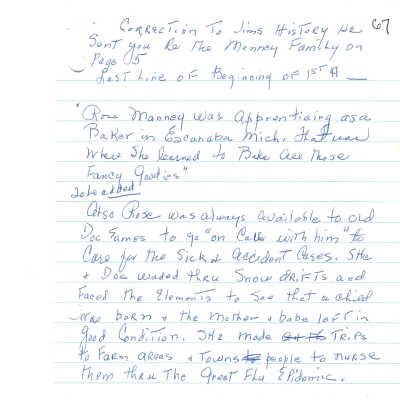 67
Correction To Jims History He
Sent you Re The Manney Family on
Page 5
Last Line of Beginning of 1st A
"Rose Manney was Apprenticing as a
Baker in Escanaba Mich. That was
Where She learned to Bake all those
Fancy Goodies"
to be added
Also Rose was always available to old
Doc Eames to go "on Calls with him" to
Care for the Sick & Accident Cases. SHe
& Doc waded thru Snow drifts and
Faced the Elements to See that a child
was born & the Mother & babe left in
good Condition. SHe made TRips
to Farm areas & Towns people to nurse
them thru The Great Flu Epidemic.